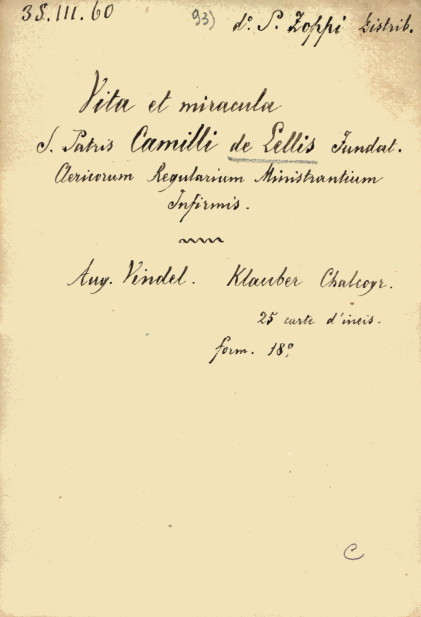 38.III.60 93) d°. P. Zoppi Distrib.
Vita et miracula
S. Patris Camilli de Lellis Fundat.
Clericorum Regularium Ministrantium
Infirmis.
Aug. Vindel. Klauber Chalcogr.
25 carte d'incis.
form. 18°
C